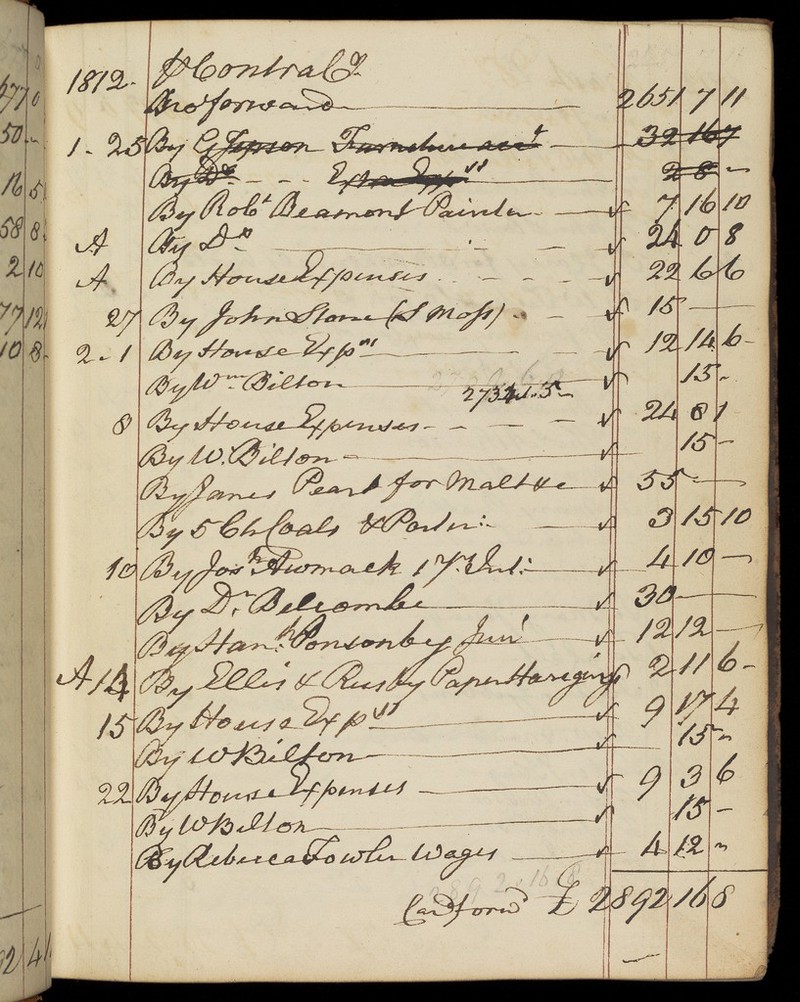 1812. P Contra Cr.
Bro' forward 2651 7 11
1. 25 By G Jepson Furneture acct 32 16 7
By Do Extra Exps 28 -
By Robt Beamont Painter 7 16 10
A By Do 24 0 8
A By House Expenses 22 6 6
27 By John Stone (S Moss) 15
2. 1 By House Exps 12 14 6
By Wm Bilton 15
2734..1..5
8 By House Expenses 24 8 1
By W. Bilton 15
By James Peart for Malt &c 55
By 5 Ch Coals & Porter: 3 15 10
10 By Josh Awmack 1 Yr Int: 4 10
By Dr. Belcombe 30
By Hanh Ponsonby Junr 12 12
A 14 By Ellis & Rusby Paper Hangings 2 11 6
15 By House Exps 9 17 4
By W Bilton 15
22 By House Expenses 9 3 6
By W Bilton 15
By Rebecca Fowler Wages 4 12
2892..16 8
Card forwd £ 2892 16 8
77 0
50
16 5
58 8
2 10
77 12
10 8
92 4